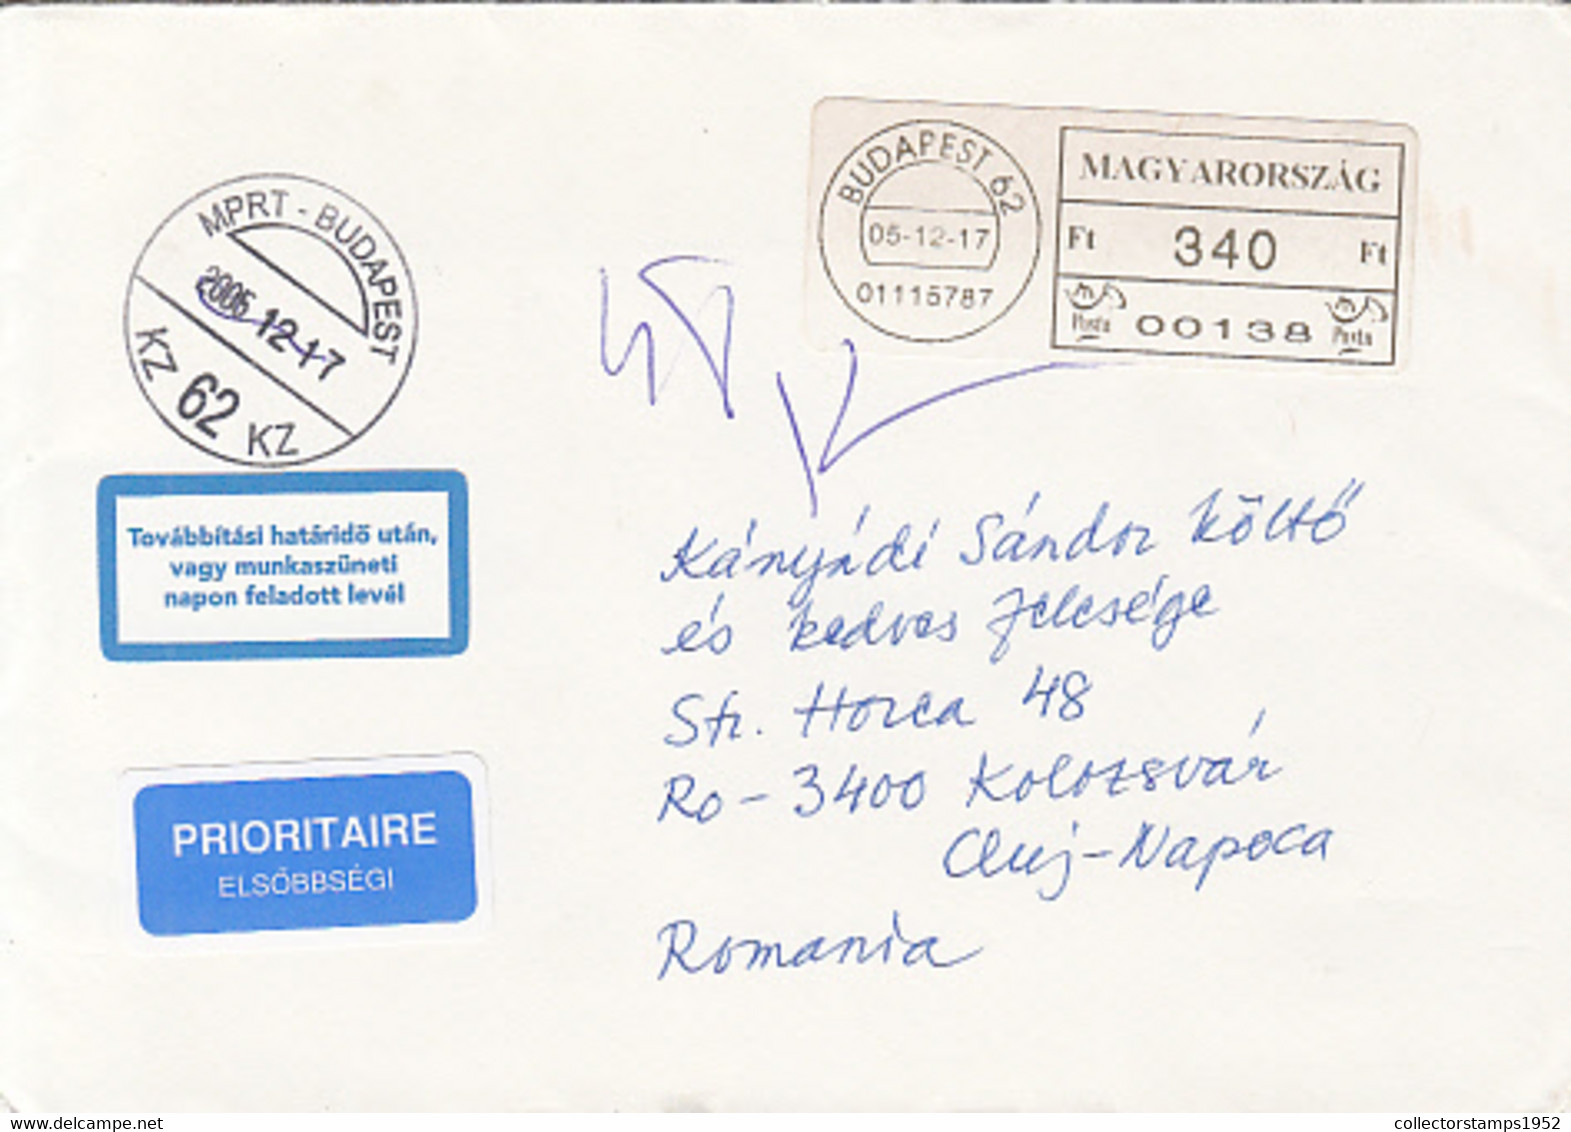 BUDAPEST 62
05-12-17
01115787
MAGYARORSZÁG
Ft 340 Ft
Posta 00138 Posta
MPRT - BUDAPEST
2005 12 17
KZ 62 KZ
Továbbítási határidő után,
vagy munkaszüneti
napon feladott levél
Kányádi Sándor költő
és kedves felesége
Str. Horea 48
Ro - 3400 Kolozsvár
Cluj-Napoca
Romania
PRIORITAIRE
ELSŐBBSÉGI
collectorstamps1952